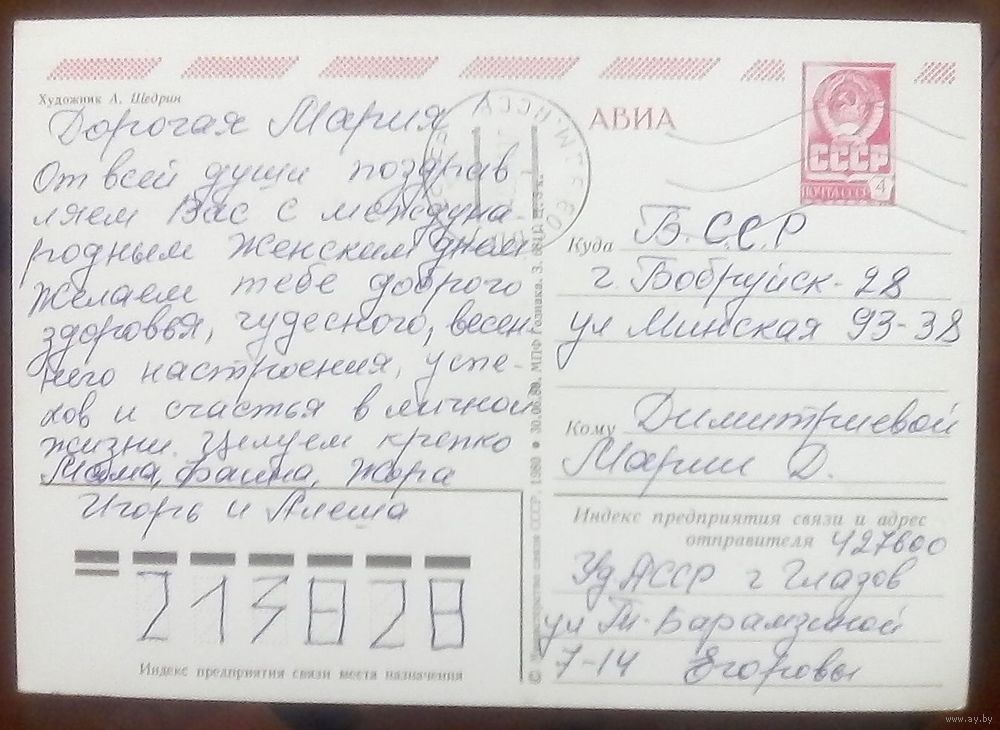 Художник А. Щедрин
АВИА
СССР
ПОЧТА СССР
4
Дорогая Мария
От всей души поздрав
ляем Вас с междуна-
родным женским днем
Желаем тебе доброго
здоровья, чудесного, весен-
него настроения, успе-
хов и счастья в личной
жизни. Целуем крепко
Мама, Фаина, Жора
Игорь и Алеша
Куда Б.С.С.Р
г. Бобруйск-28
ул Минская 93-38
Кому Димитриевой
Марии Д.
Индекс предприятия связи и адрес
отправителя 427600
УдАССР г Глазов
ул Т. Барамзиной
7-14 Егоровы
213828
Индекс предприятия связи места назначения
© Министерство связи СССР, 1980 • 30.06.80. МПФ Гознака. З.
www.ay.by